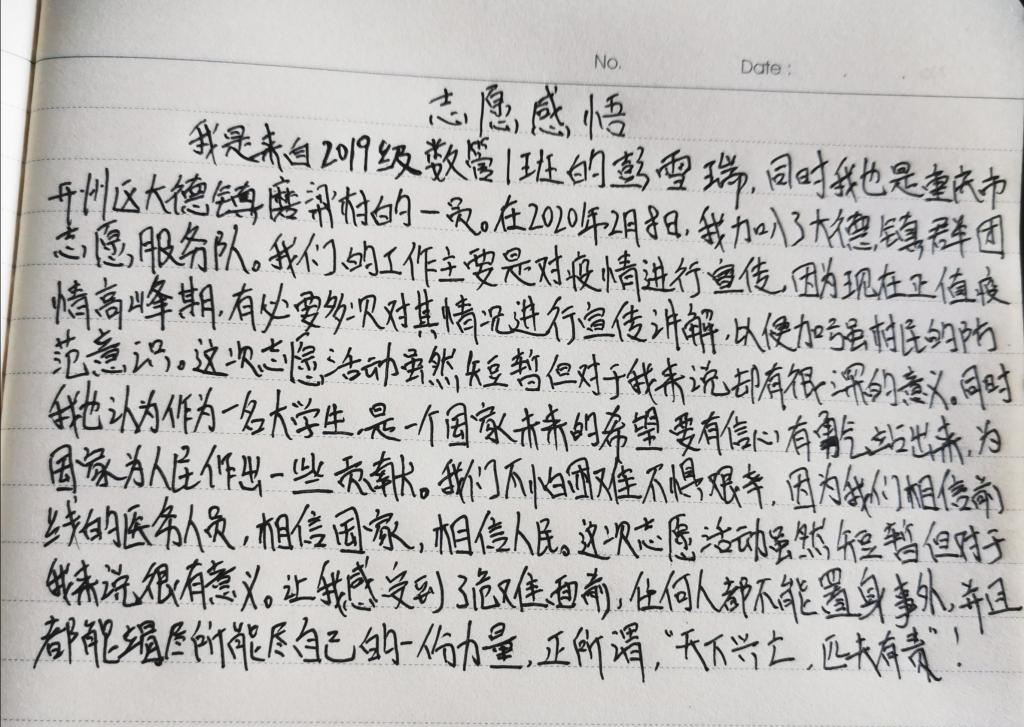 No. Date:
志愿感悟
我是来自2019级数管1班的彭雪瑞,同时我也是重庆市
开州区大德镇磨洞村的一员。在2020年2月8日,我加入了大德镇群团
志愿服务队。我们的工作主要是对疫情进行宣传,因为现在正值疫
情高峰期,有必要多次对其情况进行宣传讲解,以便加强村民的防
范意识。这次志愿活动虽然短暂但对于我来说却有很深的意义。同时
我也认为作为一名大学生,是一个国家未来的希望要有信心有勇气站出来,为
国家为人民作出一些贡献。我们不怕困难不惧艰辛,因为我们相信前
线的医务人员,相信国家,相信人民。这次志愿活动虽然短暂但对于
我来说很有意义。让我感受到了危难面前,任何人都不能置身事外,并且
都能竭尽所能尽自己的一份力量,正所谓,“天下兴亡,匹夫有责”!